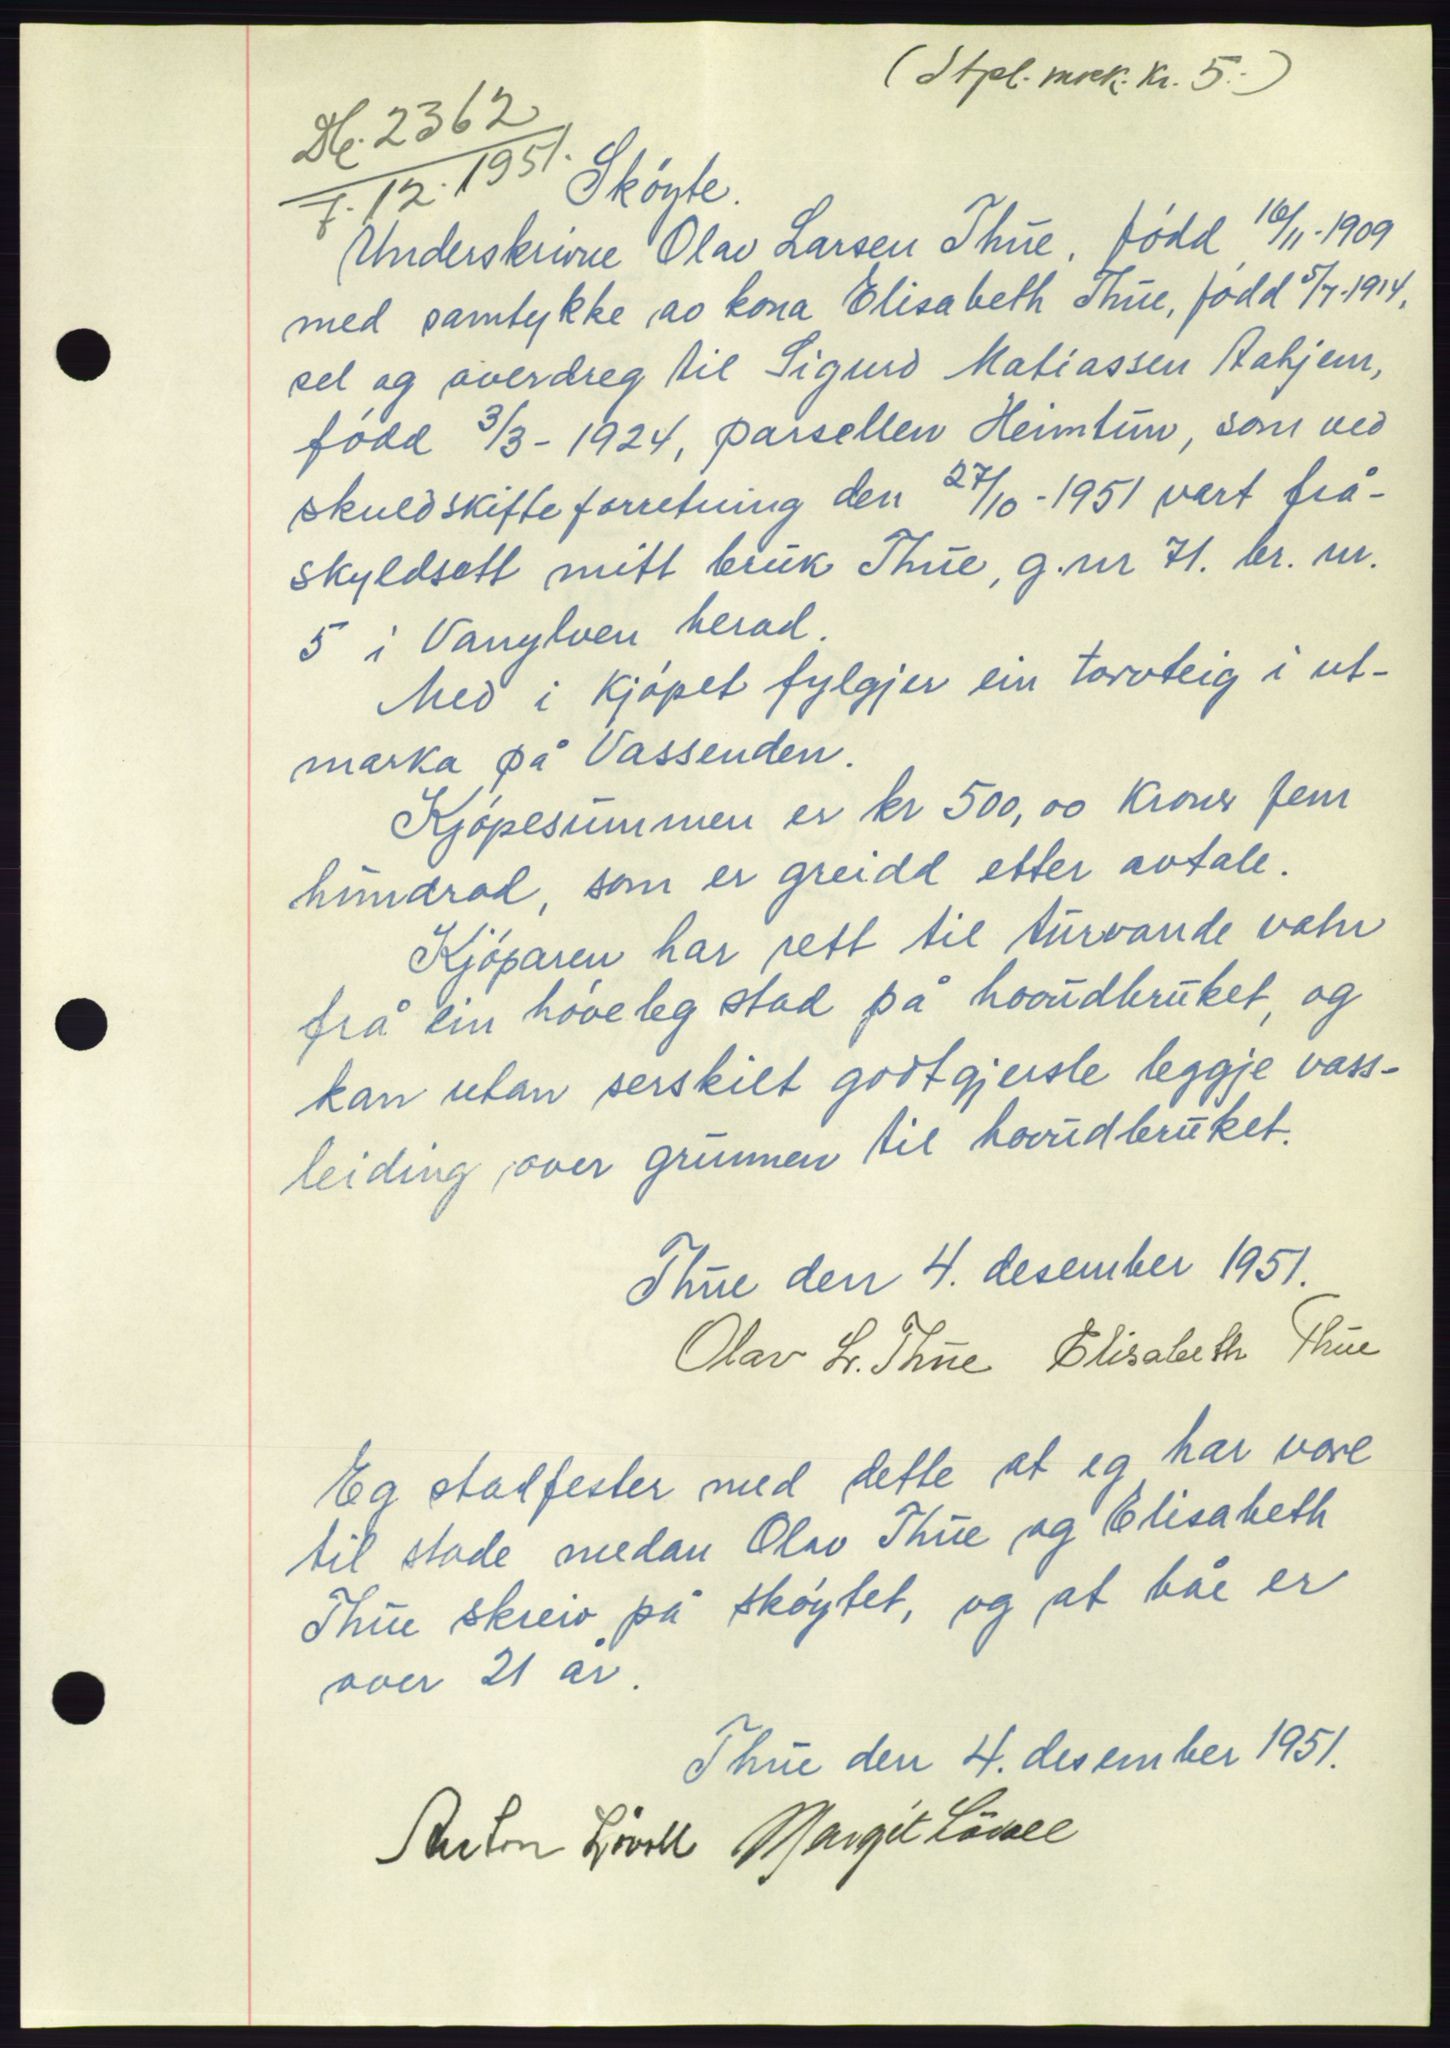 (Stpl. mrk. kr. 5.-)
Db. 2362
7.12.1951.
Skøyte.
Underskrivne Olav Larsen Thue, född 16/11-1909
med samtykke av kona Elisabeth Thue, född 5/7-1914,
sel og overdreg til Sigurd Matiassen Aahjem,
född 3/3-1924, parsellen Heimtun, som ved
skuldskifteforretning den 27/10-1951 vart frå-
skyldsett mitt bruk Thue, g.nr 71. br. nr.
5 i Vanylven herad.
Med i kjöpet fylgjer ein torvteig i ut-
marka på Vassenden.
Kjöpesummen er kr 500,00 kroner fem
hundrad, som er greidd etter avtale.
Kjöparen har rett til turvande vatn
frå ein höveleg stad på hovudbruket, og
kan utan serskilt godtgjersle leggje vass-
leiding over grunnen til hovudbruket.
Thue den 4. desember 1951.
Olav Lr. Thue Elisabeth Thue
Eg stadfester med dette at eg har vore
til stade medan Olav Thue og Elisabeth
Thue skreiv på sköytet, og at båe er
over 21 år.
Thue den 4. desember 1951.
Anton Lövoll Margit Lövoll